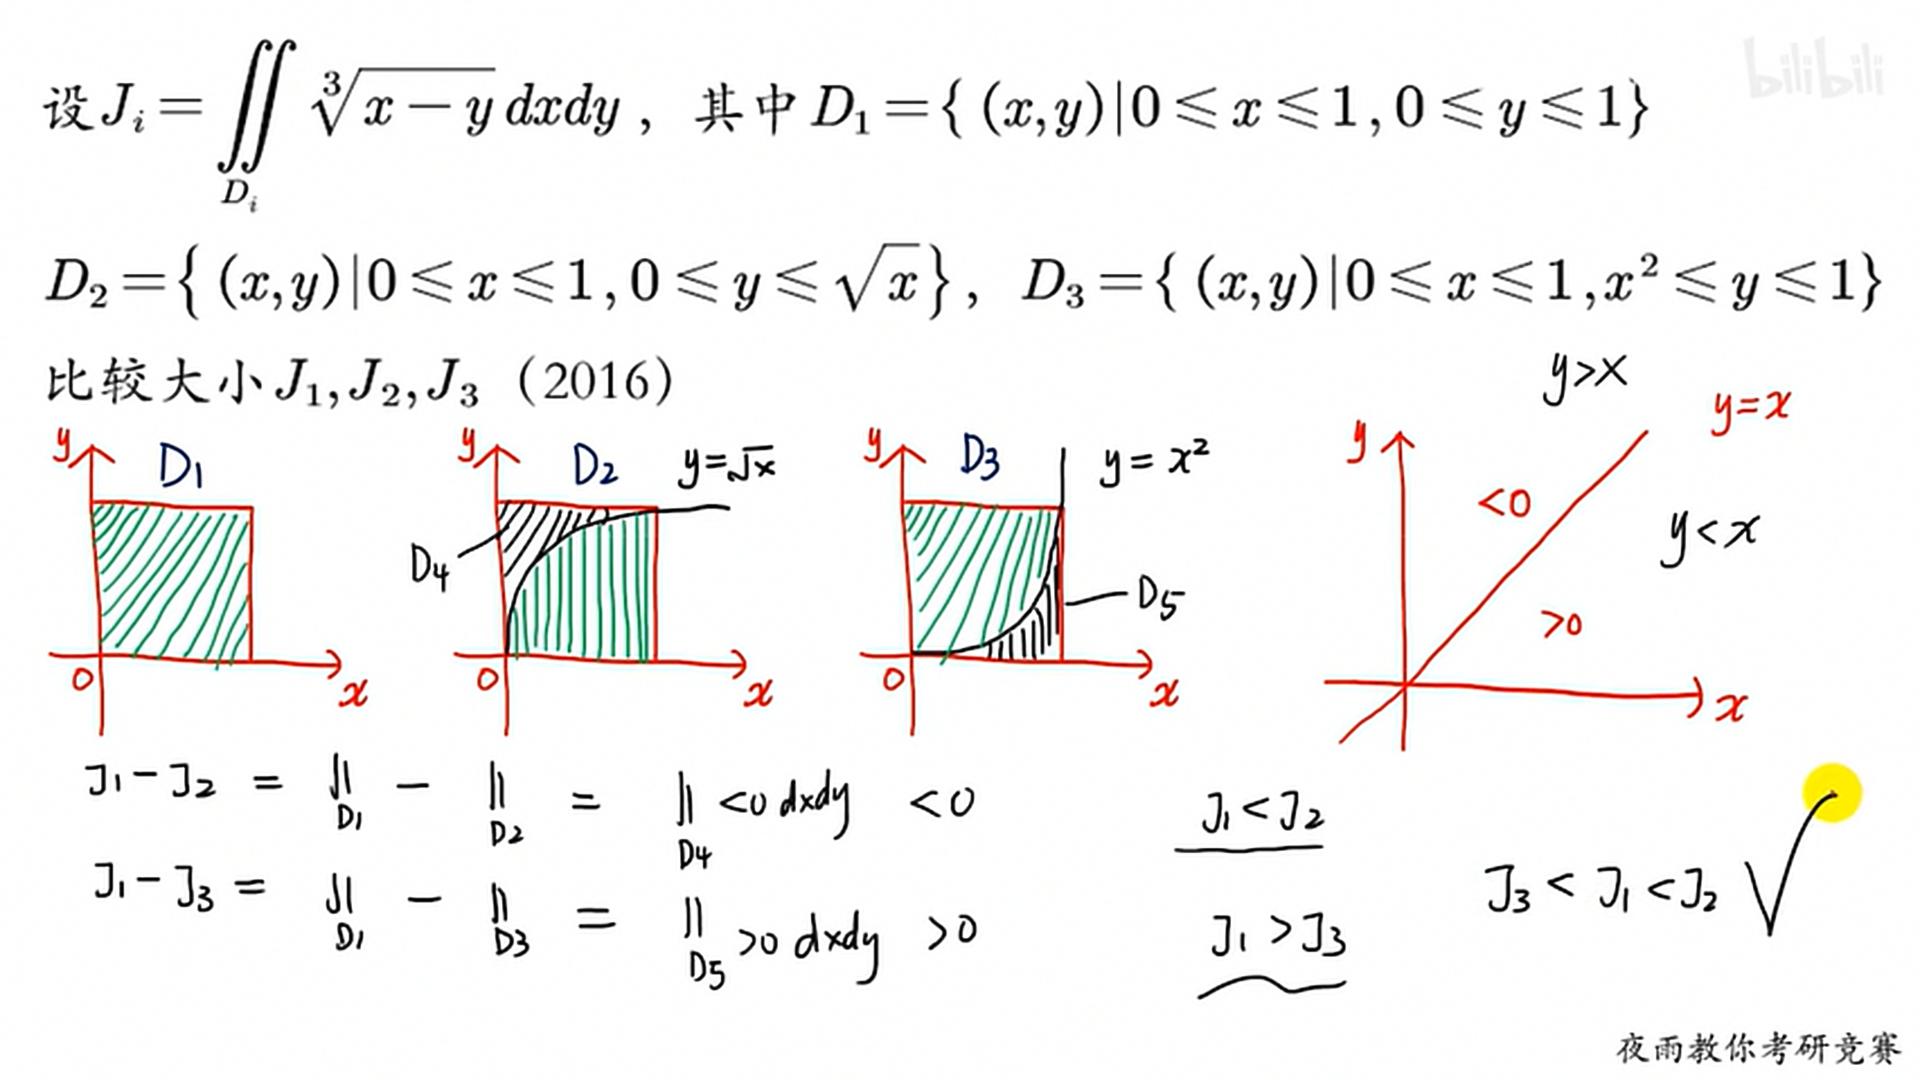 bilibili
设 J_i = ∬_{D_i} ∛(x − y) dxdy ，其中 D_1 = { (x,y)|0 ⩽ x ⩽ 1, 0 ⩽ y ⩽ 1}
D_2 = { (x,y)|0 ⩽ x ⩽ 1, 0 ⩽ y ⩽ √x }, D_3 = { (x,y)|0 ⩽ x ⩽ 1, x² ⩽ y ⩽ 1}
比较大小 J_1, J_2, J_3（2016）
y D1 x O
y D2 y=√x D4 x O
y D3 y = x² D5 x O
y>x y=x y <0 y<x >0 x
J1 − J2 = ∬_{D1} − ∬_{D2} = ∬_{D4} <0 dxdy <0 J1 < J2
J1 − J3 = ∬_{D1} − ∬_{D3} = ∬_{D5} >0 dxdy >0 J1 > J3
J3 < J1 < J2 √
夜雨教你考研竞赛